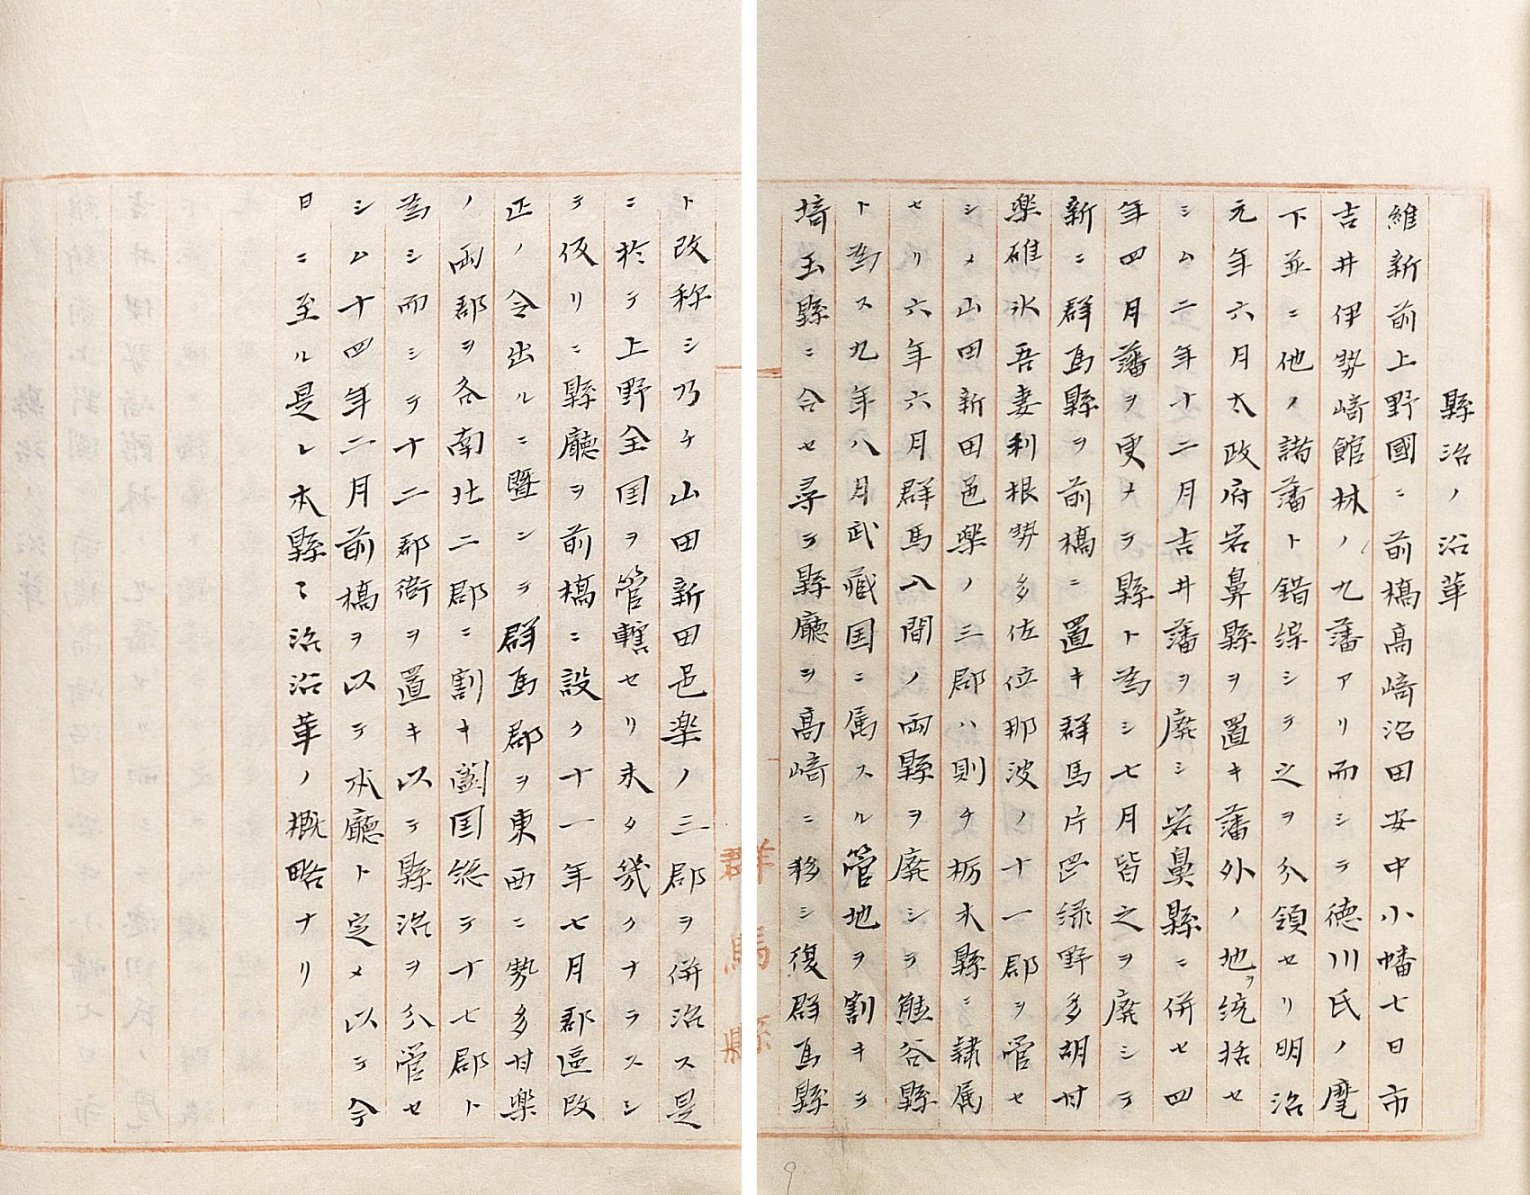 縣治ノ沿革
維新前上野國ニ前橋高﨑沼田安中小幡七日市
吉井伊勢﨑館林ノ九藩アリ而シテ德川氏ノ麾
下並ニ他ノ諸藩ト錯綜シテ之ヲ分領セリ明治
元年六月太政府岩鼻縣ヲ置キ藩外ノ地ヲ統括セ
シム二年十二月吉井藩ヲ廃シ岩鼻縣ニ併セ四
年四月藩ヲ更メテ縣ト為シ七月皆之ヲ廃シテ
新ニ群馬縣ヲ前橋ニ置キ群馬片岡緑野多胡甘
楽碓氷吾妻利根勢多佐位那波ノ十一郡ヲ管セ
シメ山田新田邑楽ノ三郡ハ則チ栃木縣ニ隷属
セリ六年六月群馬入間ノ両縣ヲ廃シテ熊谷縣
ト為ス九年八月武蔵国ニ属スル管地ヲ割キテ
埼玉縣ニ合セ尋テ縣廳ヲ高﨑ニ移シ復群馬縣
ト改称シ乃チ山田新田邑楽ノ三郡ヲ併治ス是
ニ於テ上野全国ヲ管轄セリ未タ幾クナラスシ
テ仮リニ縣廳ヲ前橋ニ設ク十一年七月郡區改
正ノ令出ルニ曁ンテ群馬郡ヲ東西ニ勢多甘楽
ノ両郡ヲ各南北二郡ニ割キ闔国総テ十七郡ト
為シ而シテ十二郡衙ヲ置キ以テ縣治ヲ分管セ
シム十四年二月前橋ヲ以テ本廳ト定メ以テ今
日ニ至ル是レ本縣々治沿革ノ概略ナリ
群馬縣